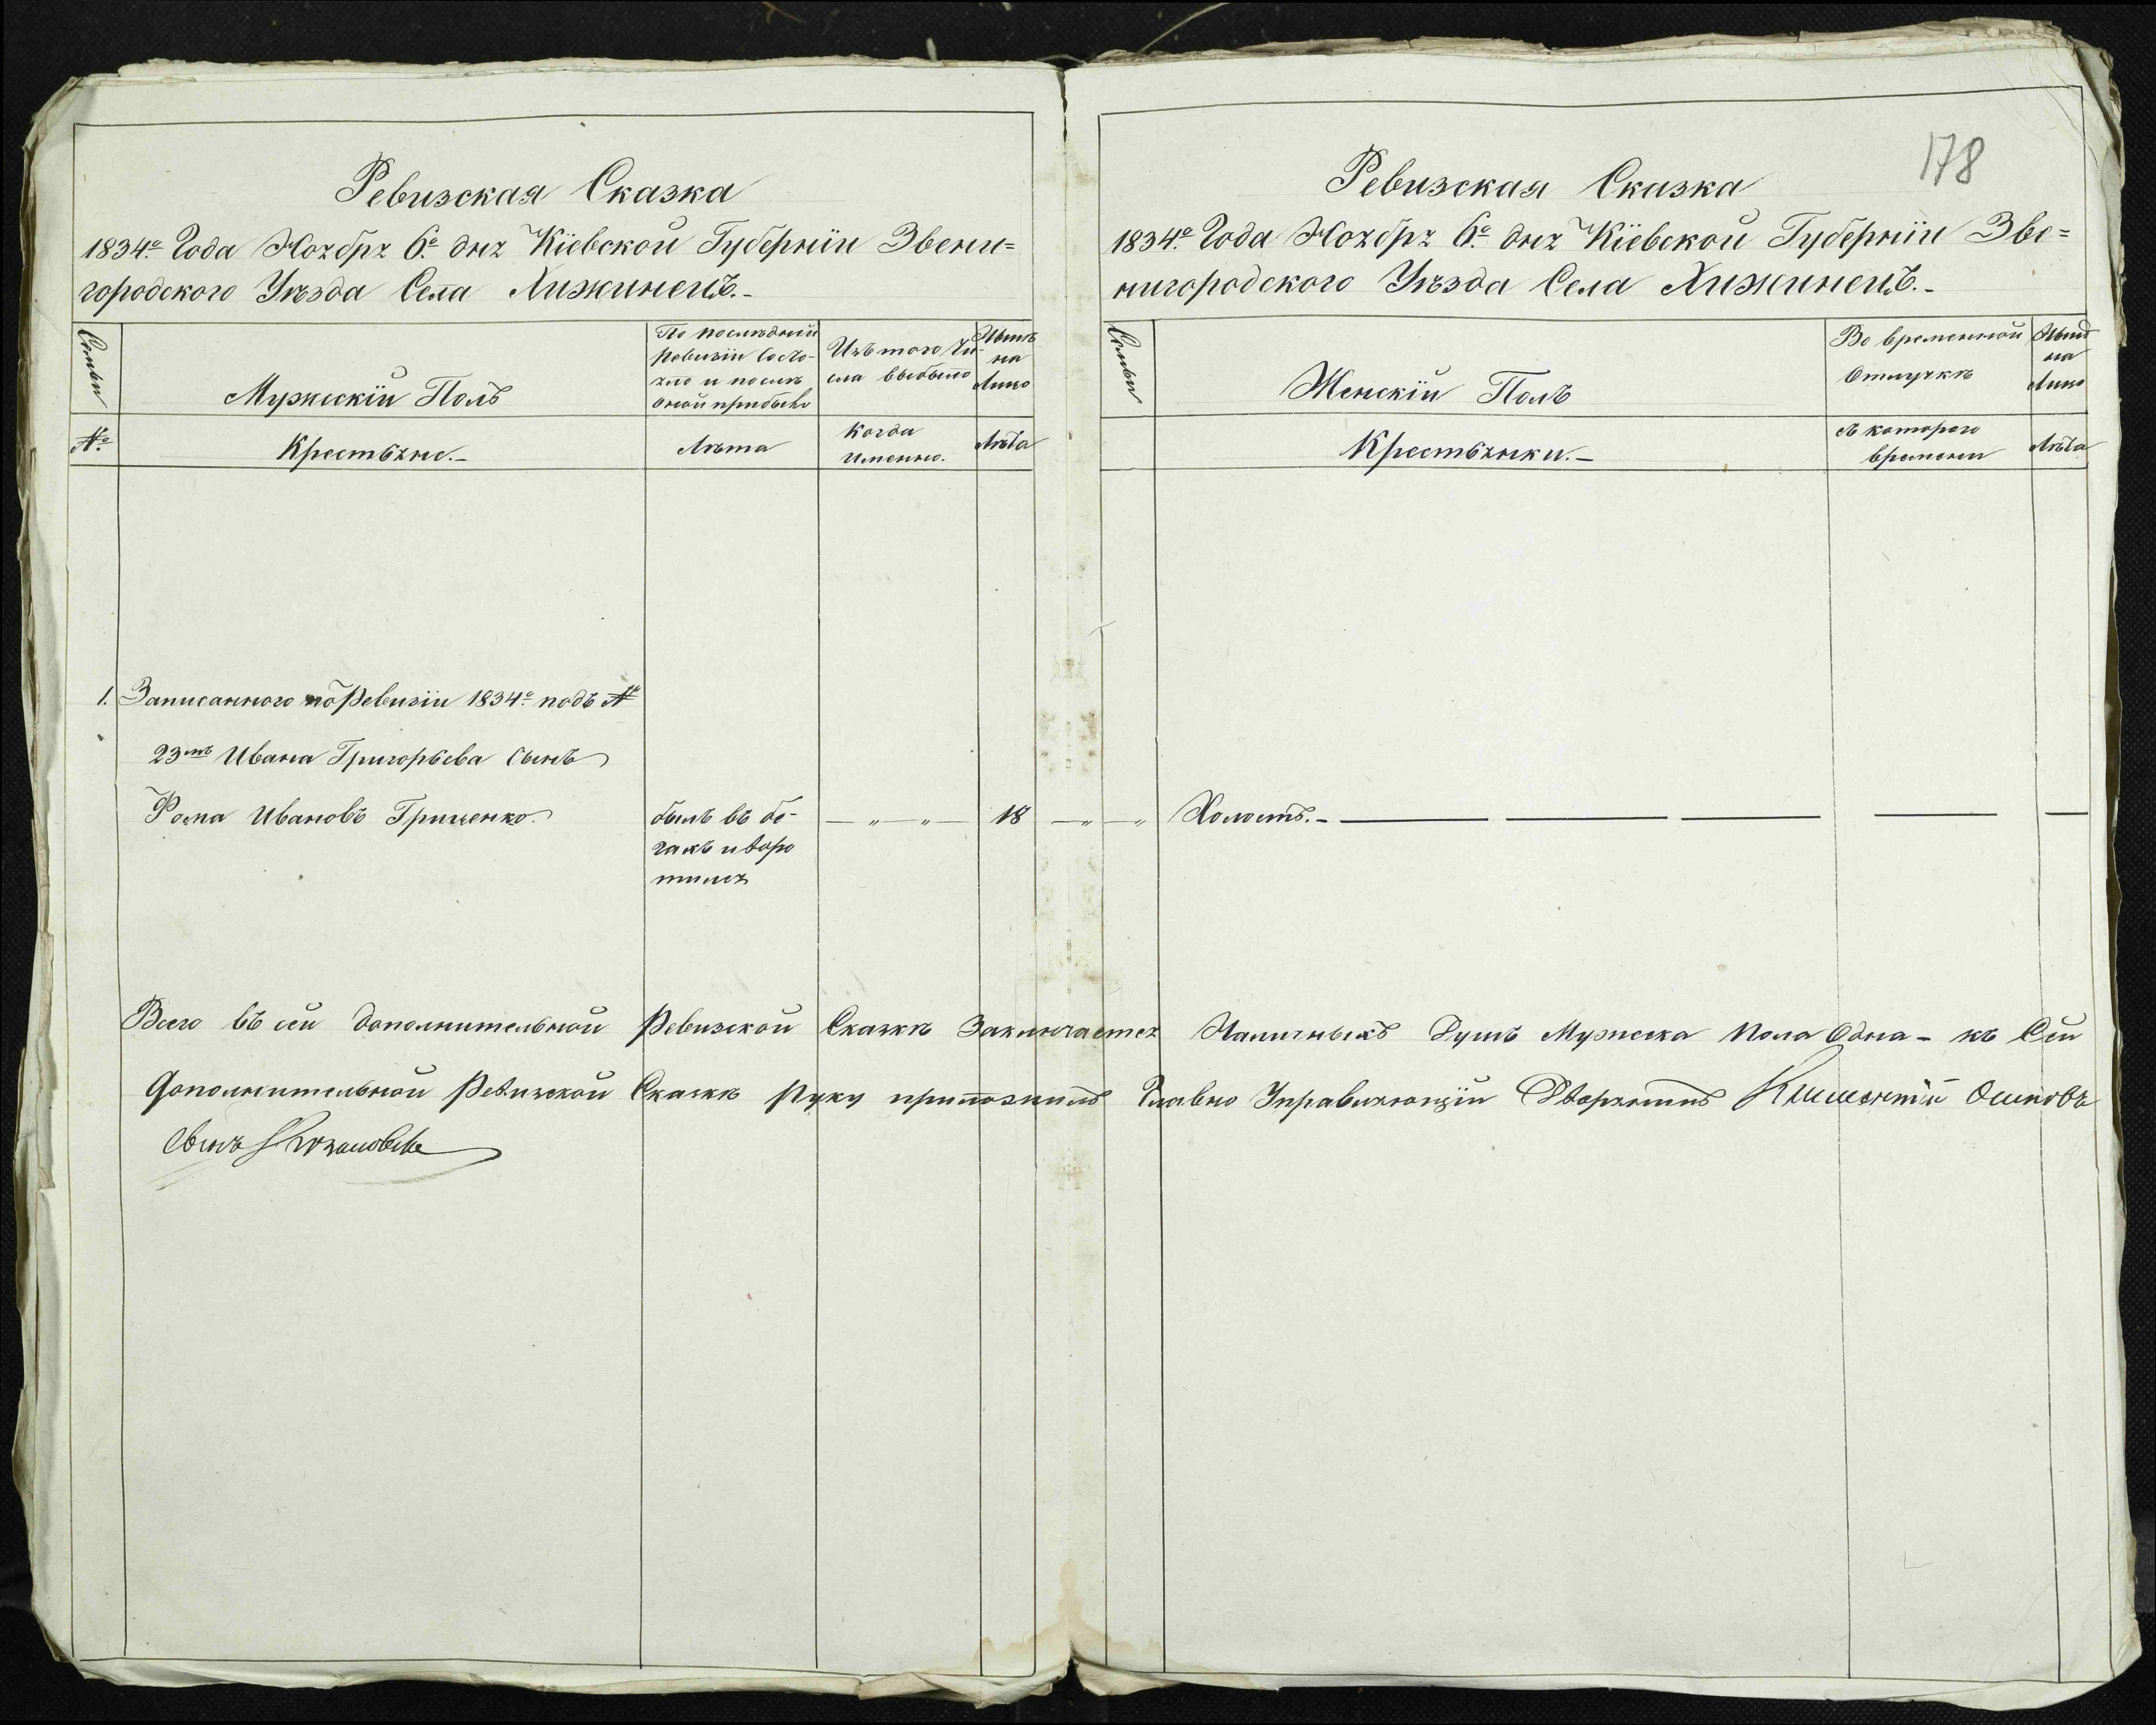 Ревизская Сказка
1834го Года Ноября 6го дня Кіевской Губерніи Звени=
городского Уѣзда Села Хижинецъ.-
Семьи
Мужескій Полъ
По послѣдней
ревизіи состо-
яло и послѣ
оной прибыло
Изъ того чи-
сла выбыло
Нынѣ
на
лицо
№
Крестьяне.-
Лѣта
Когда
именно.
Лѣта
1. Записанного по Ревизіи 1834го подъ №
23мъ Ивана Григорьева сынъ
Фома Ивановъ Гриценко.
былъ въ бѣ-
гахъ и воро
тился
— „ — „ —
18
Всего въ сей дополнительной Ревизской Сказкѣ Заключается
Дополнительной Ревизской Сказкѣ руку приложилъ
сынъ
178
Ревизская Сказка
1834го Года Ноября 6го дня Кіевской Губерніи Зве=
нигородского Уѣзда Села Хижинецъ.-
Семьи
Женскій Полъ
Во временной
Отлучкѣ
Нынѣ
на
лицо
Крестьянки.-
съ которого
времени
Лѣта
— „ — „
Холостъ.-
Наличныхъ Душъ Мужеска пола Одна - къ Сей
Главно Управляющій Дворянинъ Климентій Осиповъ